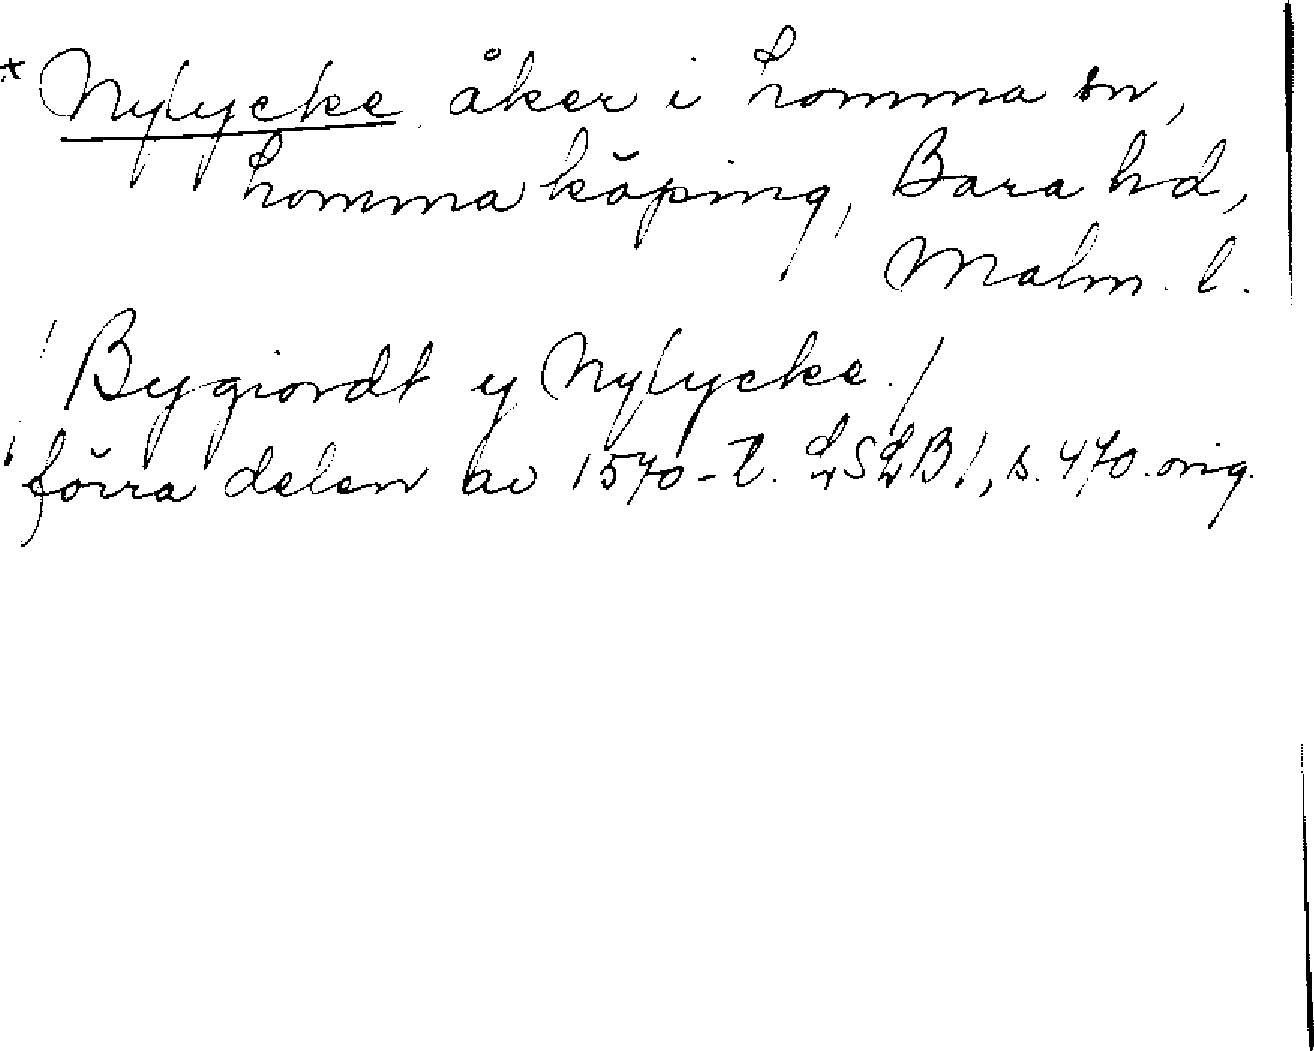 * Nylycke åker i Lomma sn,
Lomma köping, Bara hd,
Malm. l.
/ Bygiordt y Nylycke /
förra delen av 1570-t. LSLB 1, s. 470 orig.